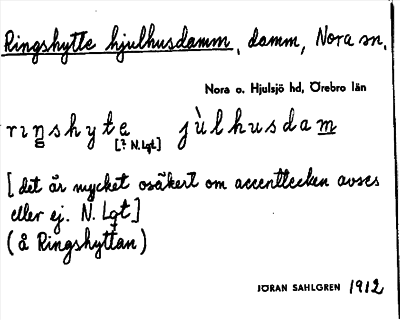 Ringshytte hjulhusdamm, damm, Nora sn.
Nora o. Hjulsjö hd, Örebro län
rıŋshyte jùlhusdam
[? N. Lgt.]
[det är mycket osäkert om accenttecken avses
eller ej. N. Lgt]
(å Ringshyttan)
JÖRAN SAHLGREN 1912